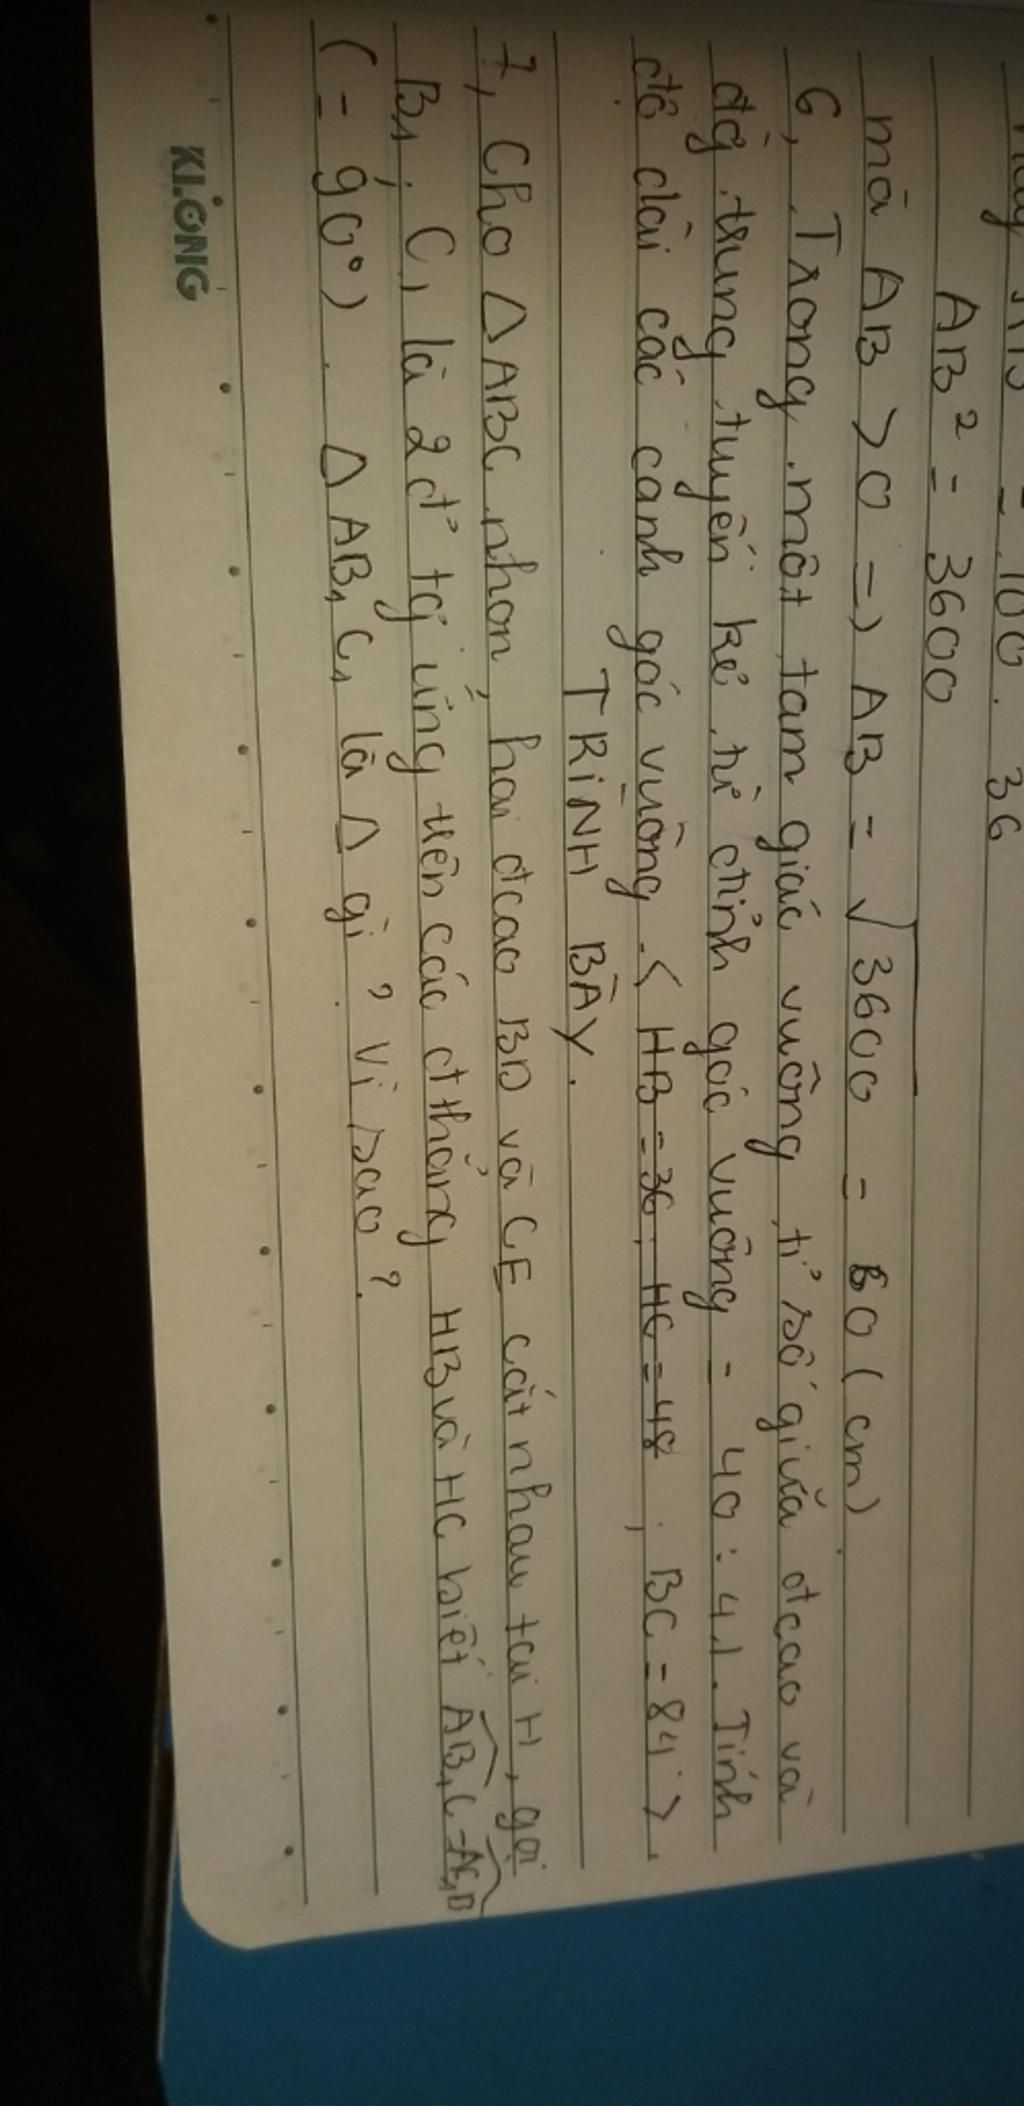 = 100. 36
AB² = 3600
mà AB > 0 => AB = √3600 = 60 (cm)
6, Trong một tam giác vuông tỉ số giữa đcao và
đg trung tuyến kẻ từ đỉnh góc vuông = 40 : 41. Tính
độ dài các cạnh góc vuông < HB = 36, HC = 48, BC = 84 >
TRÌNH BÀY.
7, Cho Δ ABC nhọn, hai đcao BD và CE cắt nhau tại H, gọi
B₁, C₁ là 2 đ' tg ứng trên các đthẳng HB và HC biết AB₁C = AC₁B
( = 90°). Δ AB₁C₁ là Δ gì? Vì sao?
KLONG